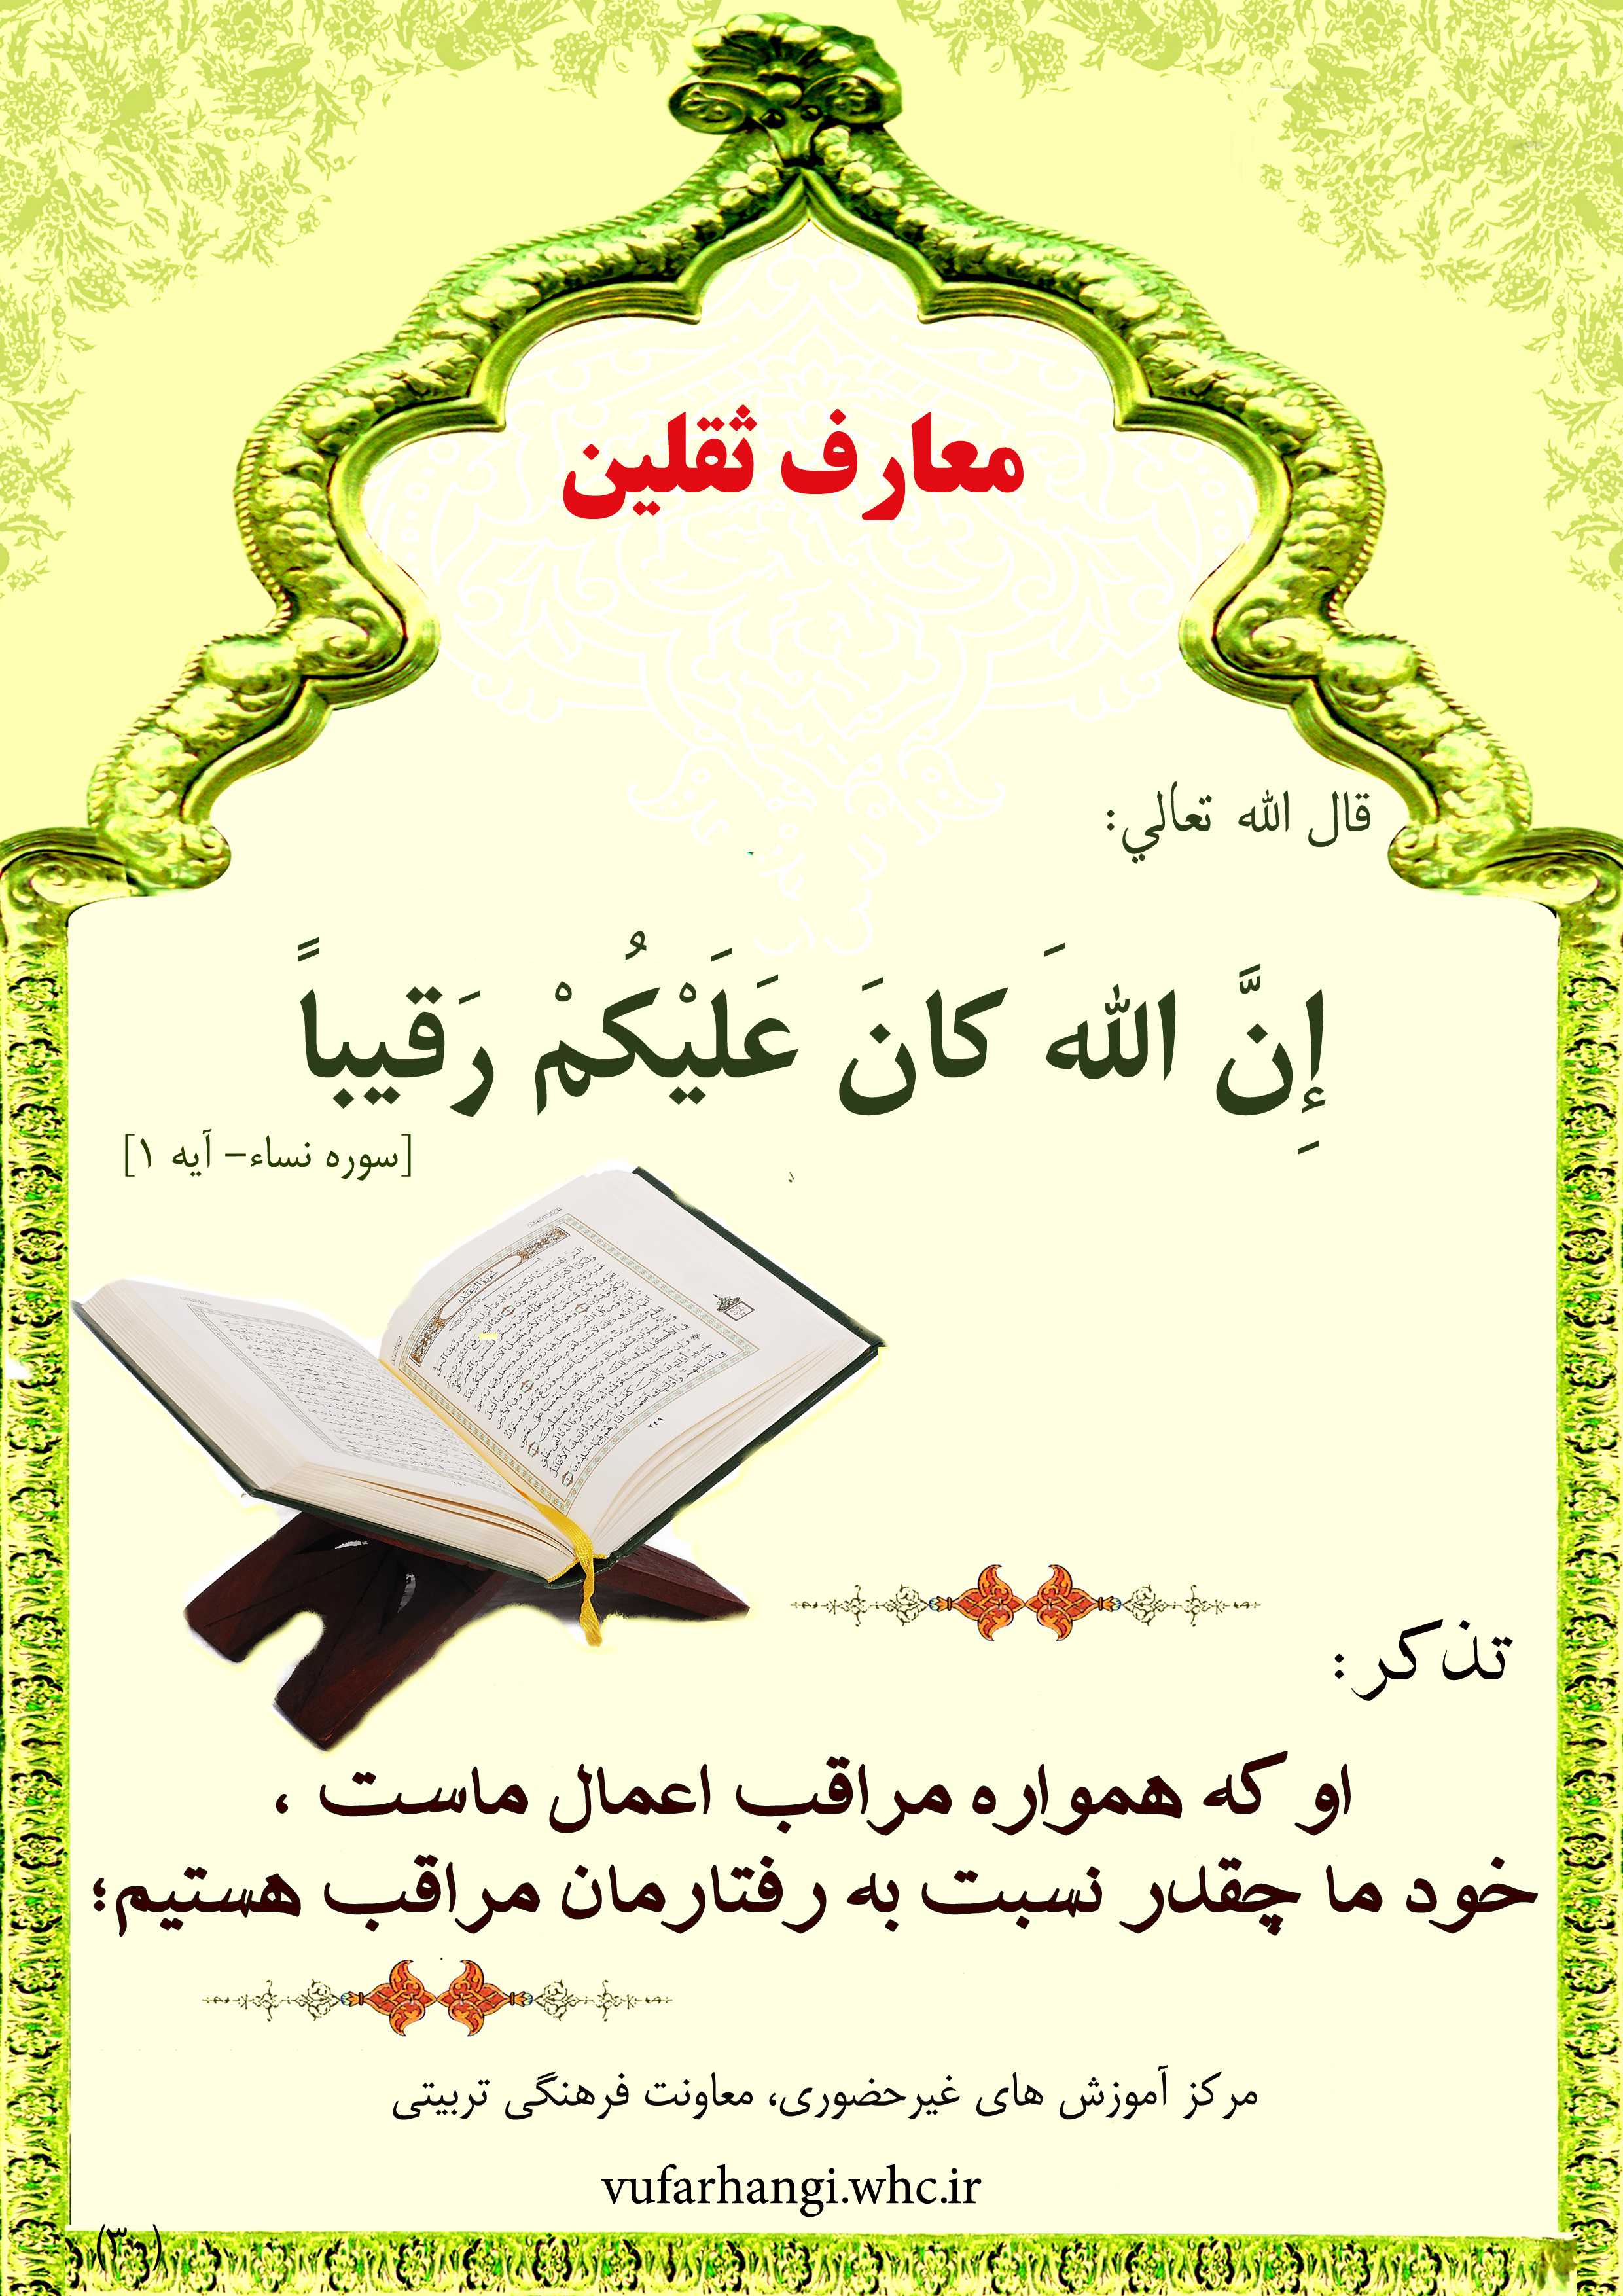 معارف ثقلین
قال الله تعالي:
إِنَّ اللهَ كانَ عَلَيْكُمْ رَقيباً
[سوره نساء- آیه ۱]
تذکر:
او که همواره مراقب اعمال ماست ،
خود ما چقدر نسبت به رفتارمان مراقب هستیم؛
مرکز آموزش های غیرحضوری، معاونت فرهنگی تربیتی
vufarhangi.whc.ir
(۳)